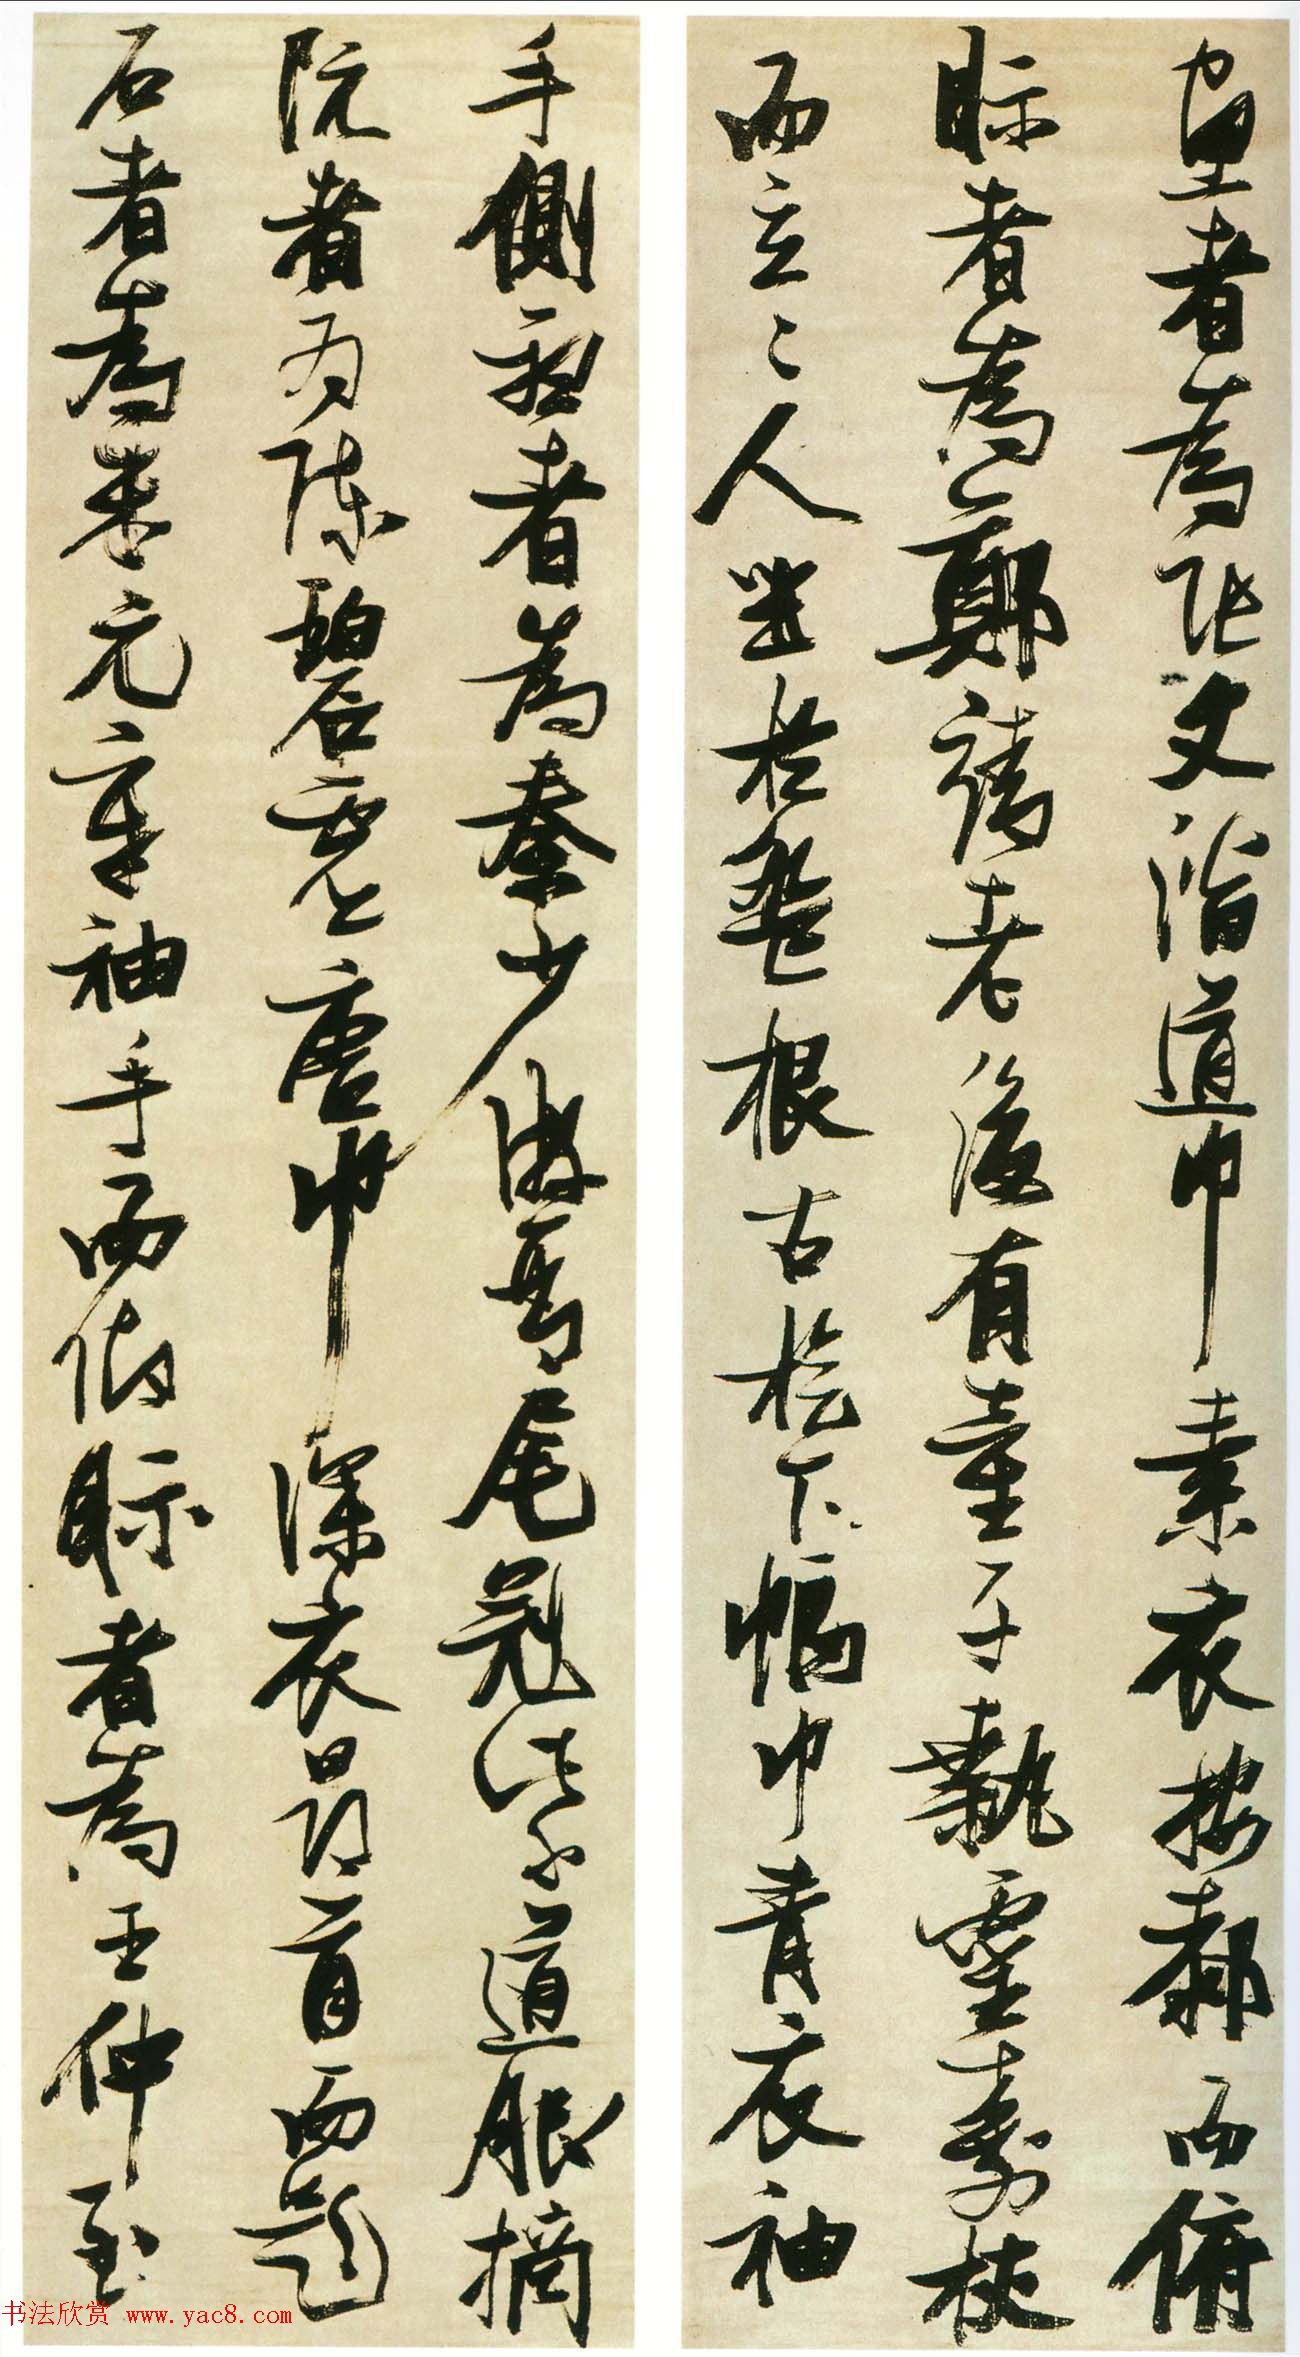 畫者為張文潛道巾素衣按膝而俯
視者為鄭靖老後有童子執靈壽杖
而立二人坐於盤根古檜下幅巾青衣袖
手側聽者為秦少游琴尾冠紫道服摘
阮者為陳碧虛唐巾深衣昂首而題
石者為米元章袖手而仰視者為王仲至
书法欣赏 www.yac8.com